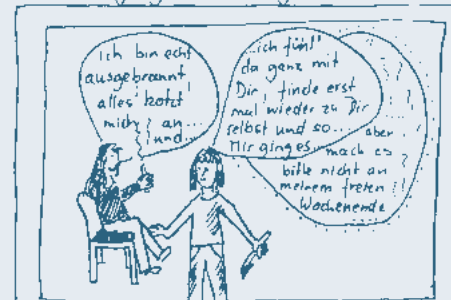 Ich bin echt
ausgebrannt
alles kotzt
mich an...
und...
...ich fühl'
da ganz mit
Dir, finde erst
mal wieder zu Dir
selbst und so...
Mir ging es
aber
mach es
bitte nicht an
meinem freien
Wochenende